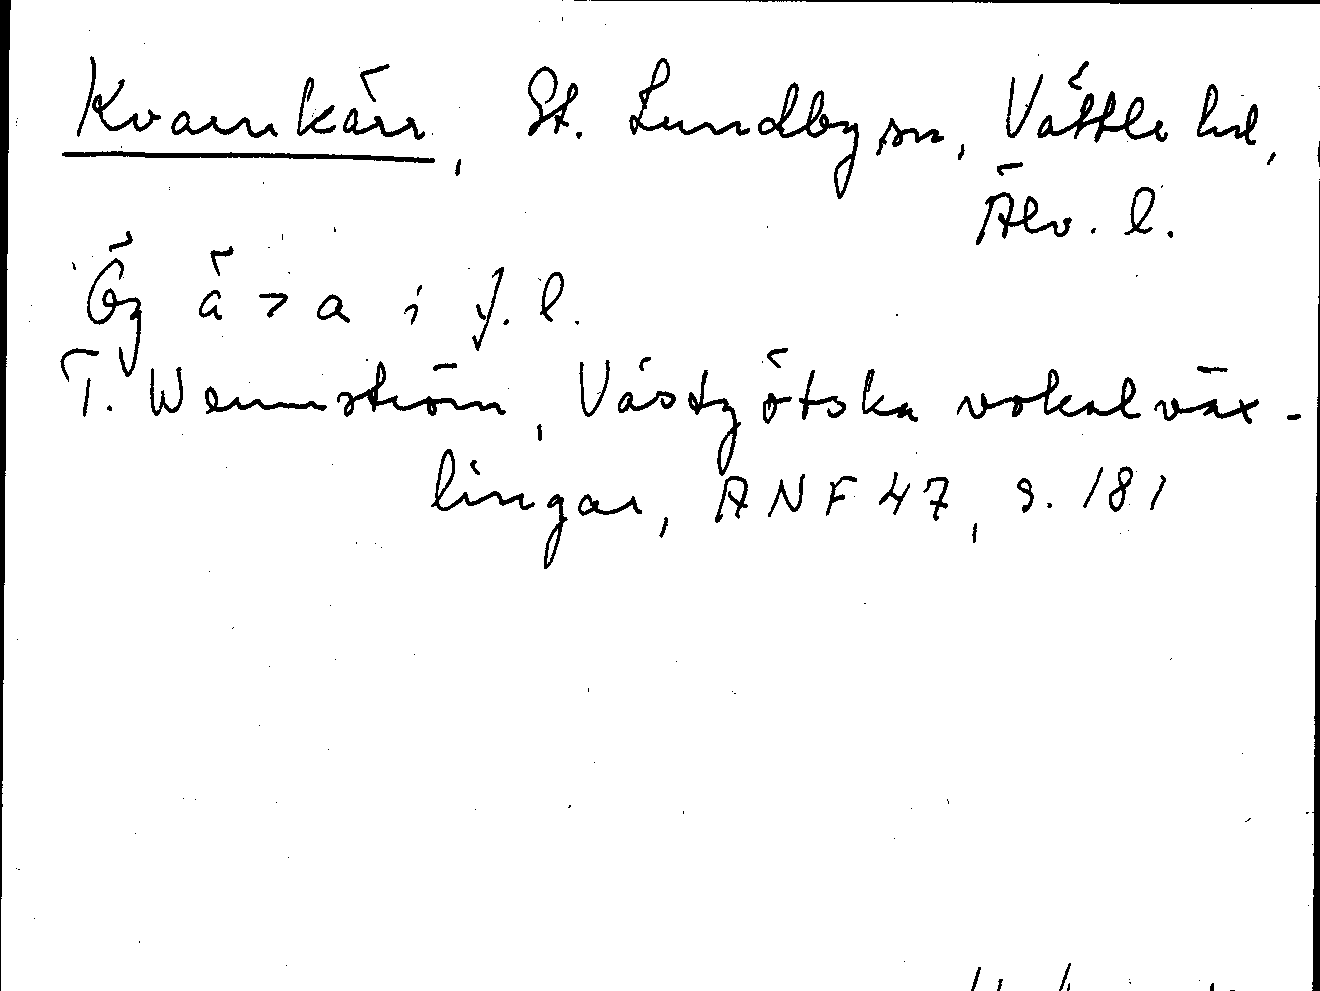 Kvarnkärr, St. Lundby sn, Vättle hd,
Älv. l.
Ög ä > a i f. l.
T. Wennström, Västgötska vokalväx-
lingar, ANF 47, s. 181